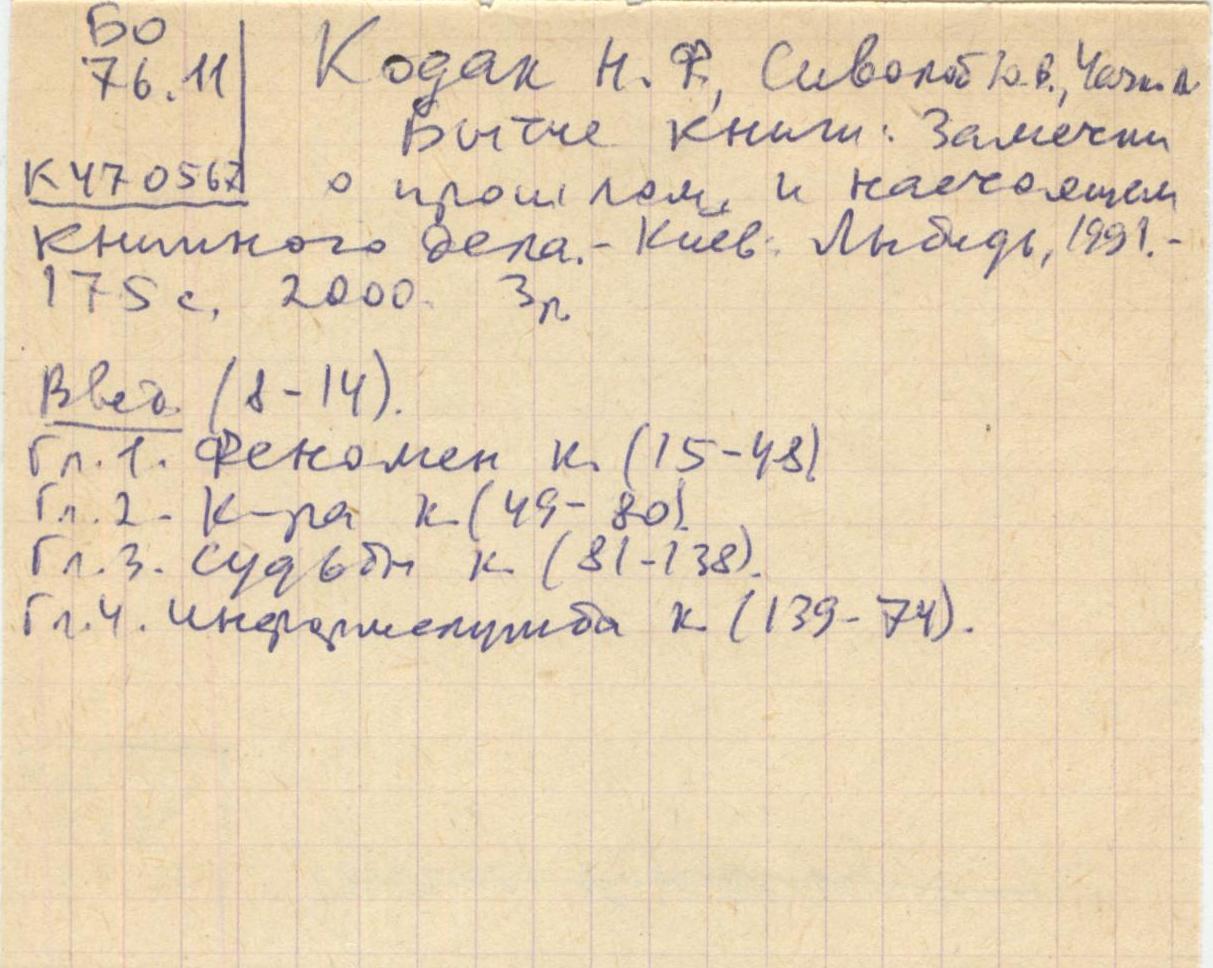 БО
76.11
К470567
Кодак Н. Ф., Сиволоб Ю.В.,
Бытие книги: Заметки
о прошлом и настоящем
книжного дела. - Киев: Лыбидь, 1991.-
175 с. 2000. 3р.
Введ. (8-14).
Гл.1. Феномен к. (15-48)
Гл.2. К-ра к. (49-80)
Гл.3. Судьбы к. (81-138).
Гл.4. Информслужба к. (139-74).